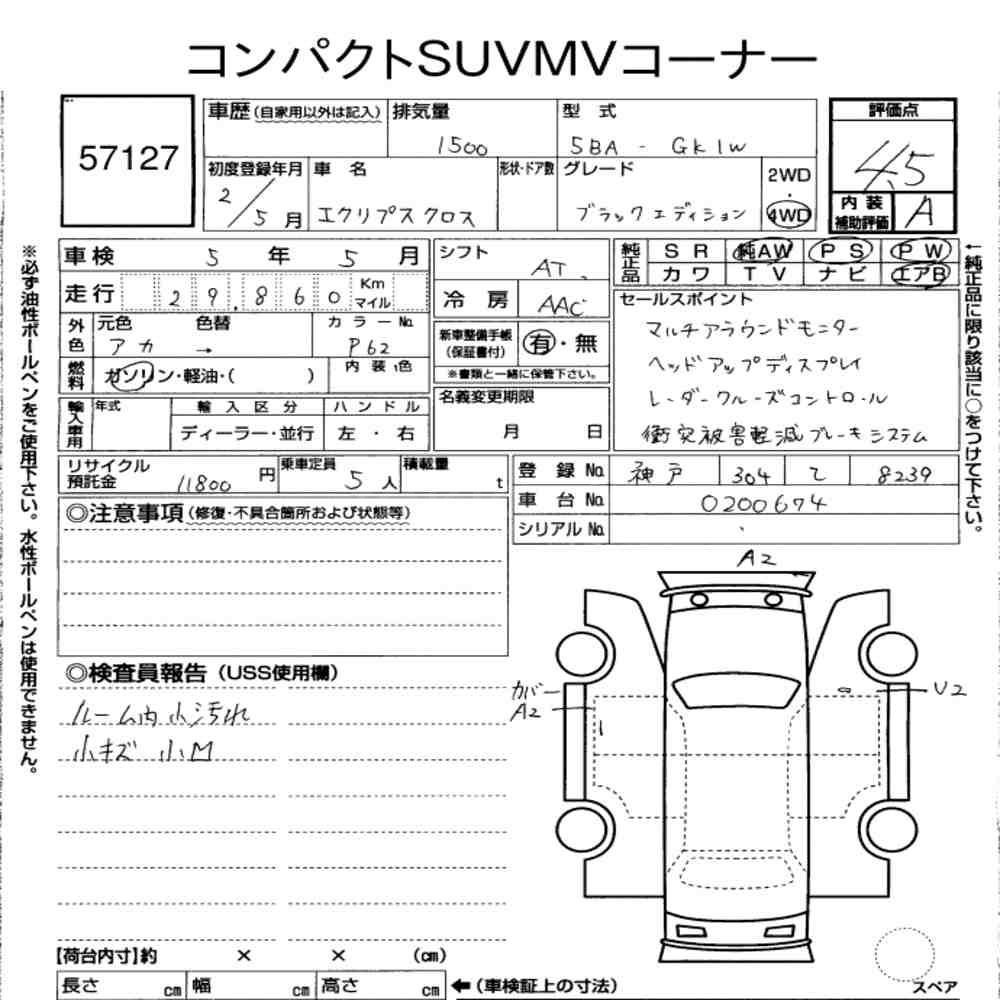 コンパクトSUVMVコーナー
57127
車歴(自家用以外は記入) 排気量 1500 型 式 5BA - GK1W
評価点 4.5
初度登録年月 2/5月 車 名 エクリプスクロス 形状・ドア数 グレード ブラックエディション 2WD・4WD
内装補助評価 A
車検 5年 5月
走行 29,860 Km マイル
外色 元色 アカ 色替 → カラーNo. P62
燃料 ガソリン・軽油・( ) 内装色
輸入車用 年式 輸入区分 ハンドル
ディーラー・並行 左・右
シフト AT
冷房 AAC
新車整備手帳(保証書付) 有・無
※書類と一緒に保管下さい。
名義変更期限
月 日
純正品 SR 純AW PS PW
カワ TV ナビ エアB
セールスポイント
マルチアラウンドモニター
ヘッドアップディスプレイ
レーダークルーズコントロール
衝突被害軽減ブレーキシステム
リサイクル預託金 11800円 乗車定員 5人 積載量 t
登録No. 神戸 304 8239
車台No. 0200674
シリアルNo.
◎注意事項(修復・不具合箇所および状態等)
◎検査員報告(USS使用欄)
ルーム内小汚れ
小キズ 小M
A2
カバー
A2
U2
【荷台内寸】約 × × (cm)
長さ cm 幅 cm 高さ cm ←(車検証上の寸法)
スペア
※必ず油性ボールペンをご使用下さい。水性ボールペンは使用できません。
←純正品に限り該当に○をつけて下さい。